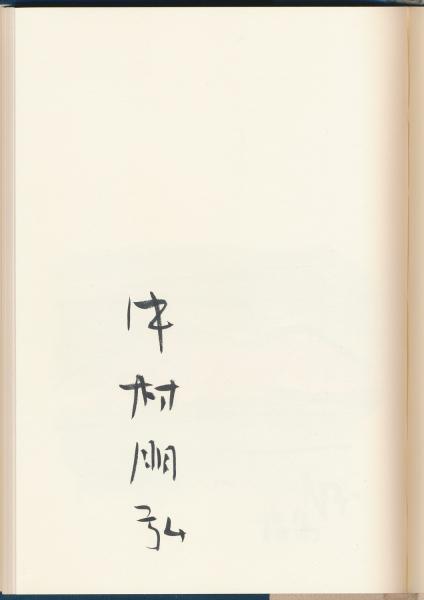 中
村
朋
弘